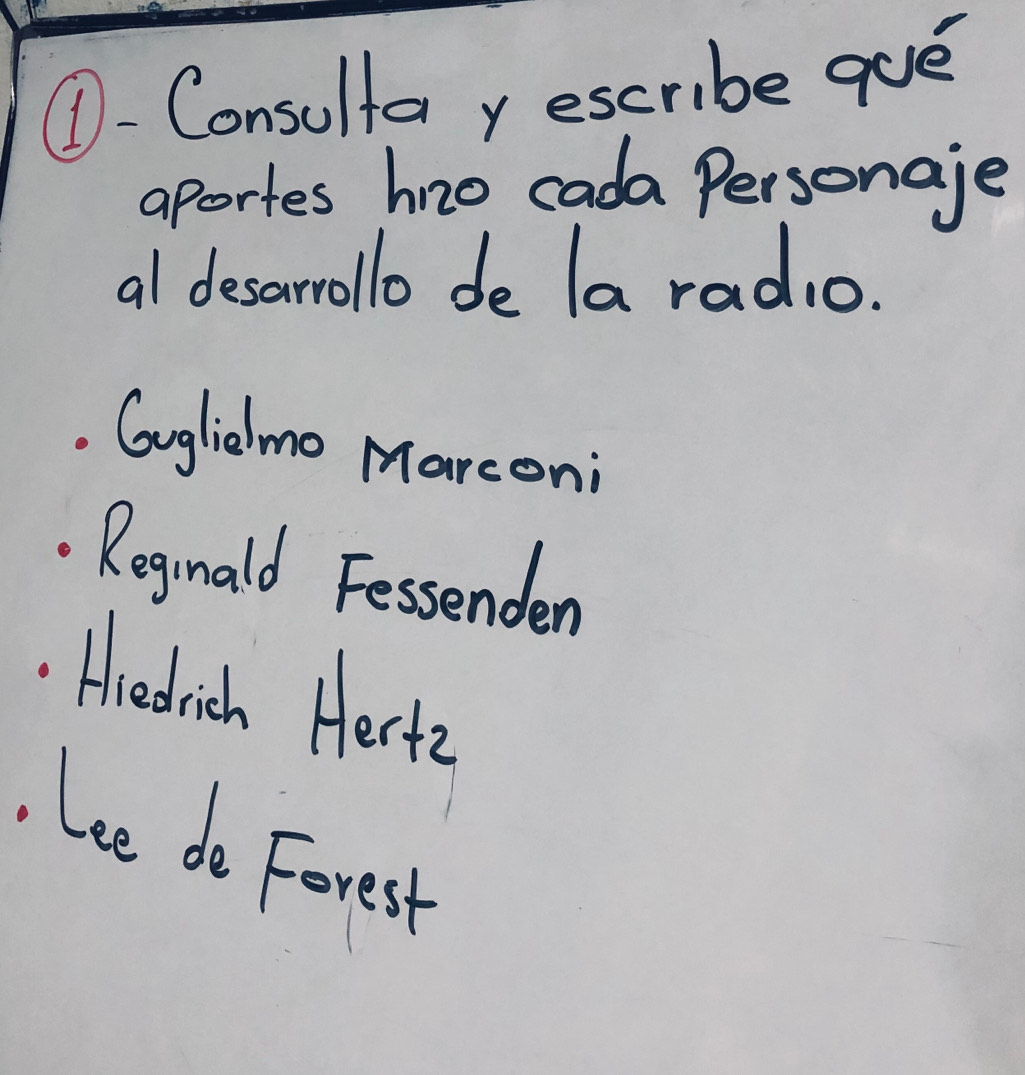 1- Consulta y escribe qué
aportes hizo cada Personaje
al desarrollo de la radio.
. Guglielmo Marconi
. Reginald Fessenden
. Hiedrich Hertz
. Lee de Forest